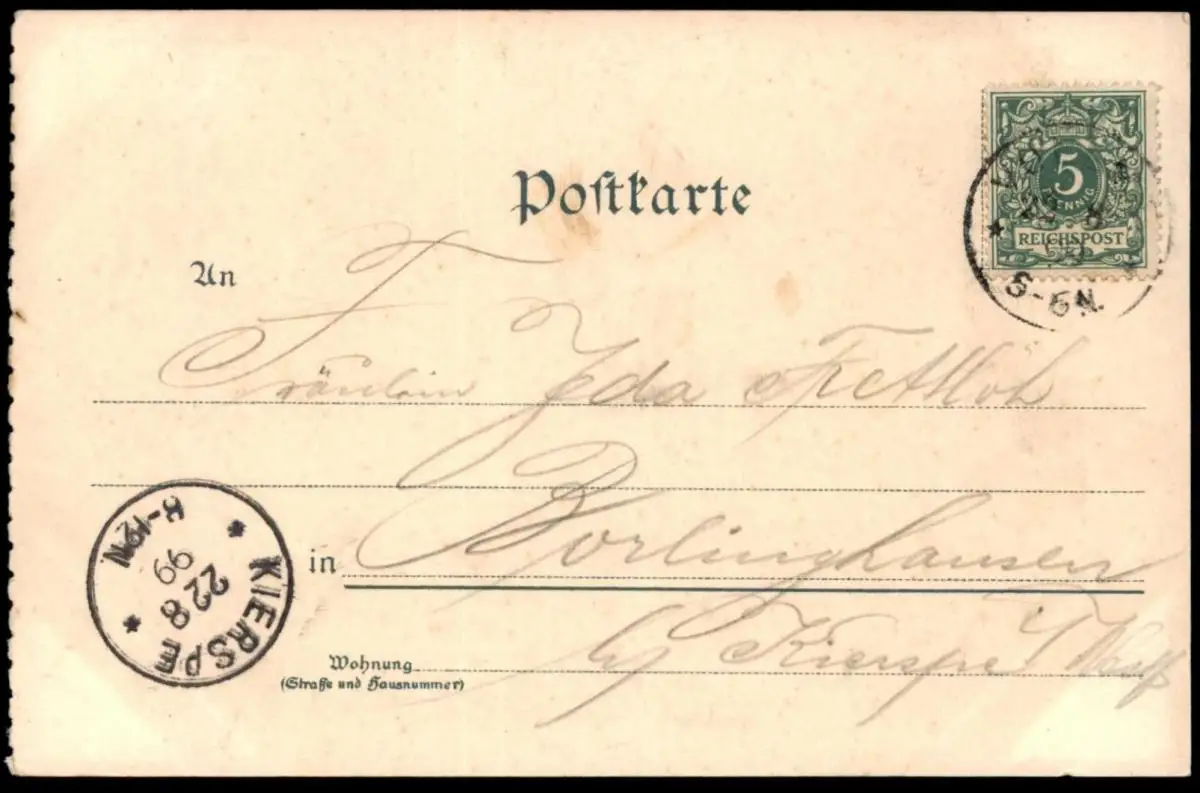 Postkarte
5
PFENNIG
REICHSPOST
22 8
5-6N.
An
Fräulein Ida
in Borlinghausen
Wohnung
b/ Kierspe i/ Westf
(Straße und Hausnummer)
KIERSPE
22 8
99
8-12N